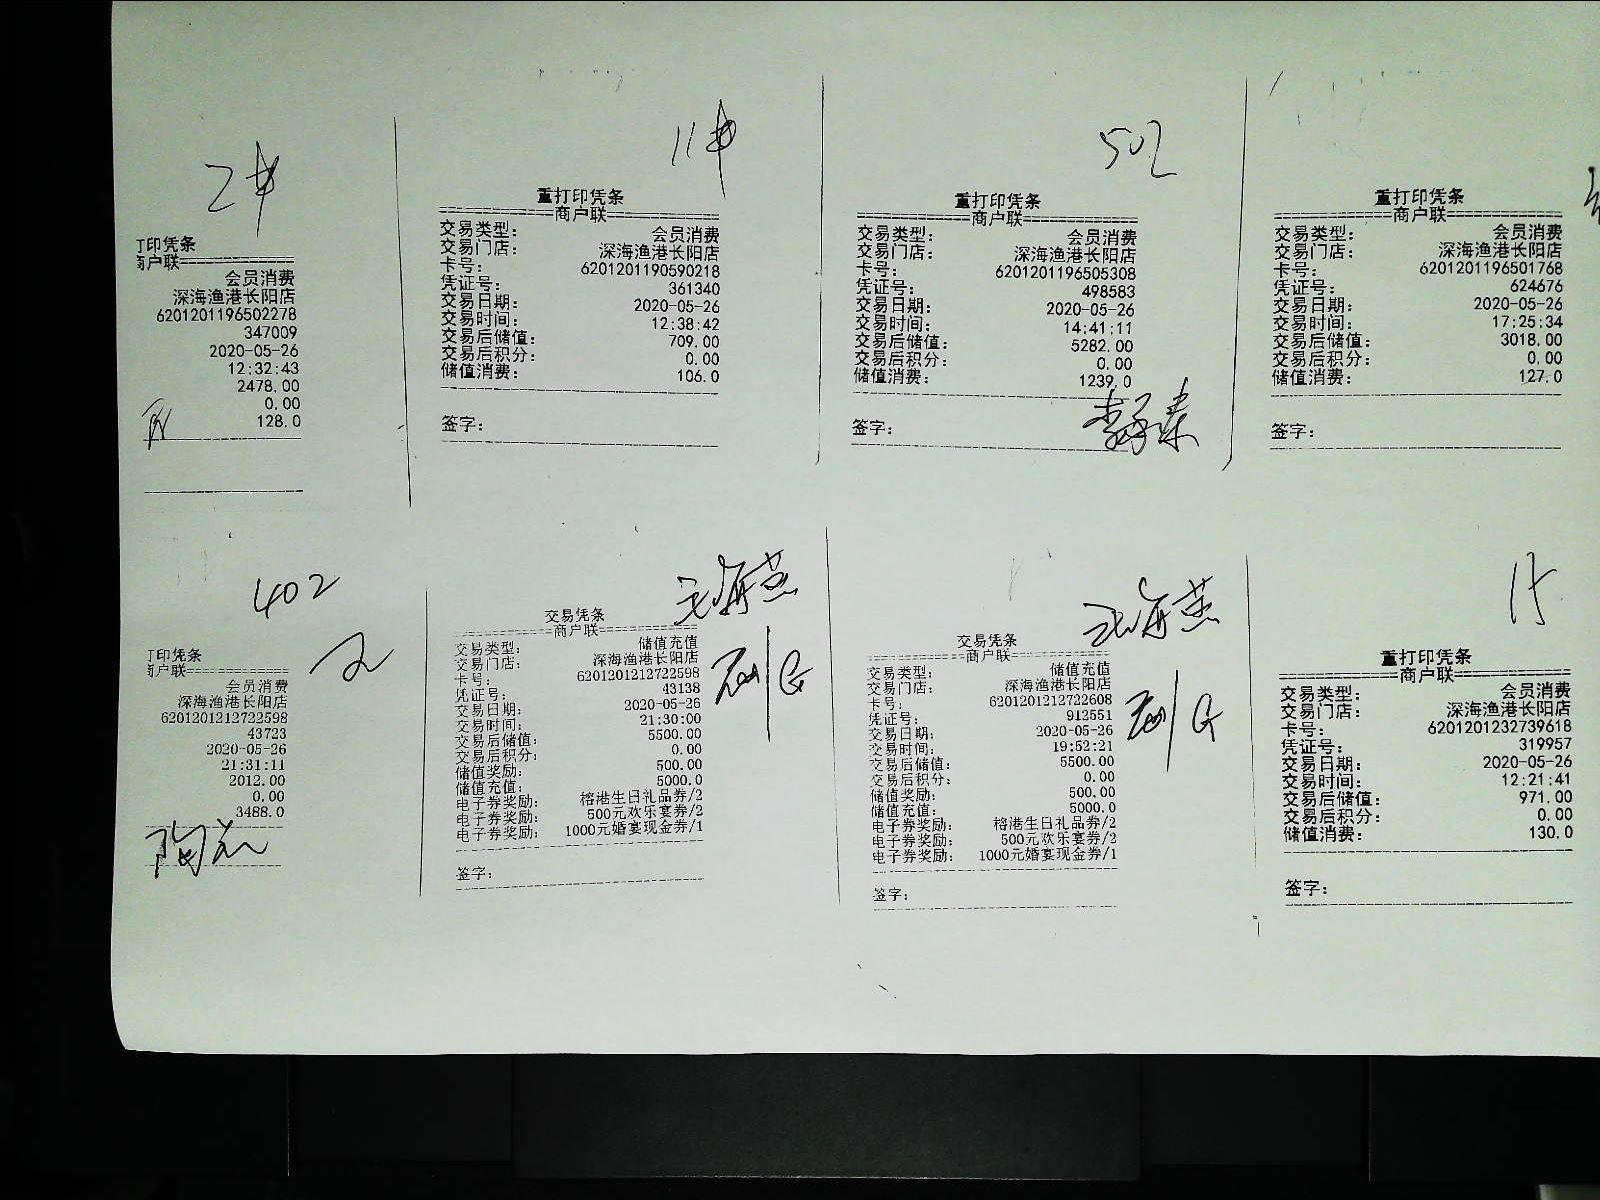 2#
打印凭条
商户联
会员消费
深海渔港长阳店
6201201196502278
347009
2020-05-26
12:32:43
2478.00
0.00
128.0
11#
重打印凭条
商户联
交易类型: 会员消费
交易门店: 深海渔港长阳店
卡号: 6201201190590218
凭证号: 361340
交易日期: 2020-05-26
交易时间: 12:38:42
交易后储值: 709.00
交易后积分: 0.00
储值消费: 106.0
签字:
502
重打印凭条
商户联
交易类型: 会员消费
交易门店: 深海渔港长阳店
卡号: 6201201196505308
凭证号: 498583
交易日期: 2020-05-26
交易时间: 14:41:11
交易后储值: 5282.00
交易后积分: 0.00
储值消费: 1239.0
签字:
重打印凭条
商户联
交易类型: 会员消费
交易门店: 深海渔港长阳店
卡号: 6201201196501768
凭证号: 624676
交易日期: 2020-05-26
交易时间: 17:25:34
交易后储值: 3018.00
交易后积分: 0.00
储值消费: 127.0
签字:
402
打印凭条
商户联
会员消费
深海渔港长阳店
6201201212722598
43723
2020-05-26
21:31:11
2012.00
0.00
3488.0
交易凭条
商户联
交易类型: 储值充值
交易门店: 深海渔港长阳店
卡号: 6201201212722598
凭证号: 43138
交易日期: 2020-05-26
交易时间: 21:30:00
交易后储值: 5500.00
交易后积分: 0.00
储值奖励: 500.00
储值充值: 5000.0
电子券奖励: 榕港生日礼品券/2
电子券奖励: 500元欢乐宴券/2
电子券奖励: 1000元婚宴现金券/1
签字:
交易凭条
商户联
交易类型: 储值充值
交易门店: 深海渔港长阳店
卡号: 6201201212722608
凭证号: 912551
交易日期: 2020-05-26
交易时间: 19:52:21
交易后储值: 5500.00
交易后积分: 0.00
储值奖励: 500.00
储值充值: 5000.0
电子券奖励: 榕港生日礼品券/2
电子券奖励: 500元欢乐宴券/2
电子券奖励: 1000元婚宴现金券/1
签字:
15
重打印凭条
商户联
交易类型: 会员消费
交易门店: 深海渔港长阳店
卡号: 6201201232739618
凭证号: 319957
交易日期: 2020-05-26
交易时间: 12:21:41
交易后储值: 971.00
交易后积分: 0.00
储值消费: 130.0
签字: